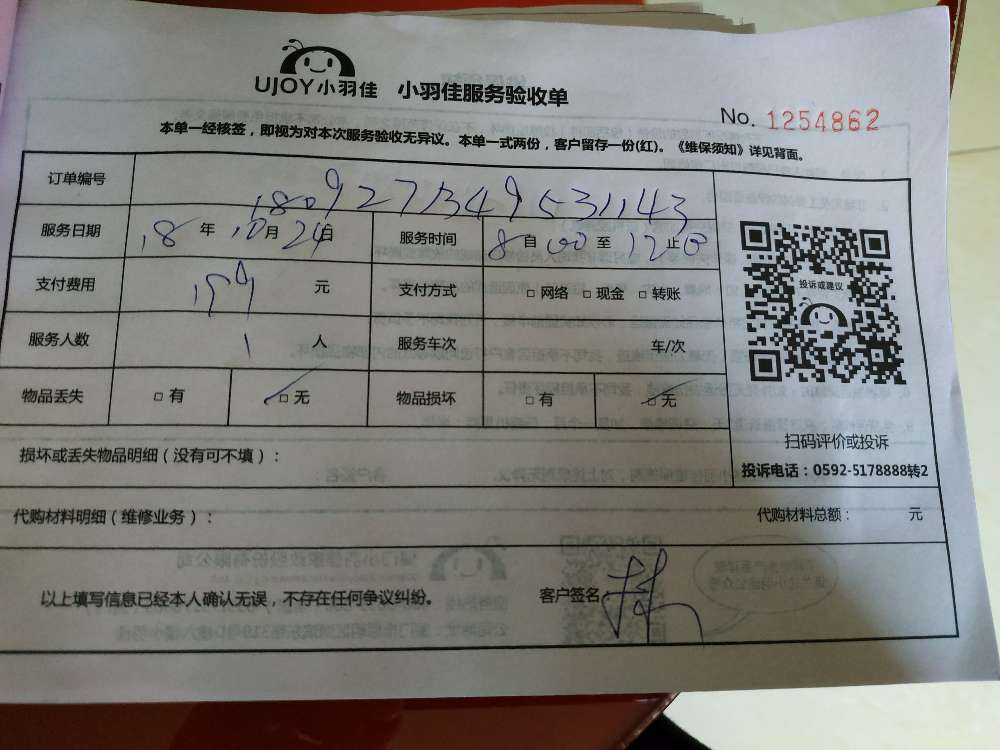 UJOY小羽佳 小羽佳服务验收单
No. 1254862
本单一经核签，即视为对本次服务验收无异议。本单一式两份，客户留存一份(红)。《维保须知》详见背面。
订单编号 1809271349531143
服务日期 18年10月24日 服务时间 8自00至12止0
支付费用 199元 支付方式 □网络 □现金 □转账
服务人数 1人 服务车次 车/次
物品丢失 □有 □无 物品损坏 □有 □无
投诉或建议
扫码评价或投诉
投诉电话：0592-5178888转2
损坏或丢失物品明细（没有可不填）：
代购材料明细（维修业务）： 代购材料总额： 元
以上填写信息已经本人确认无误，不存在任何争议纠纷。 客户签名